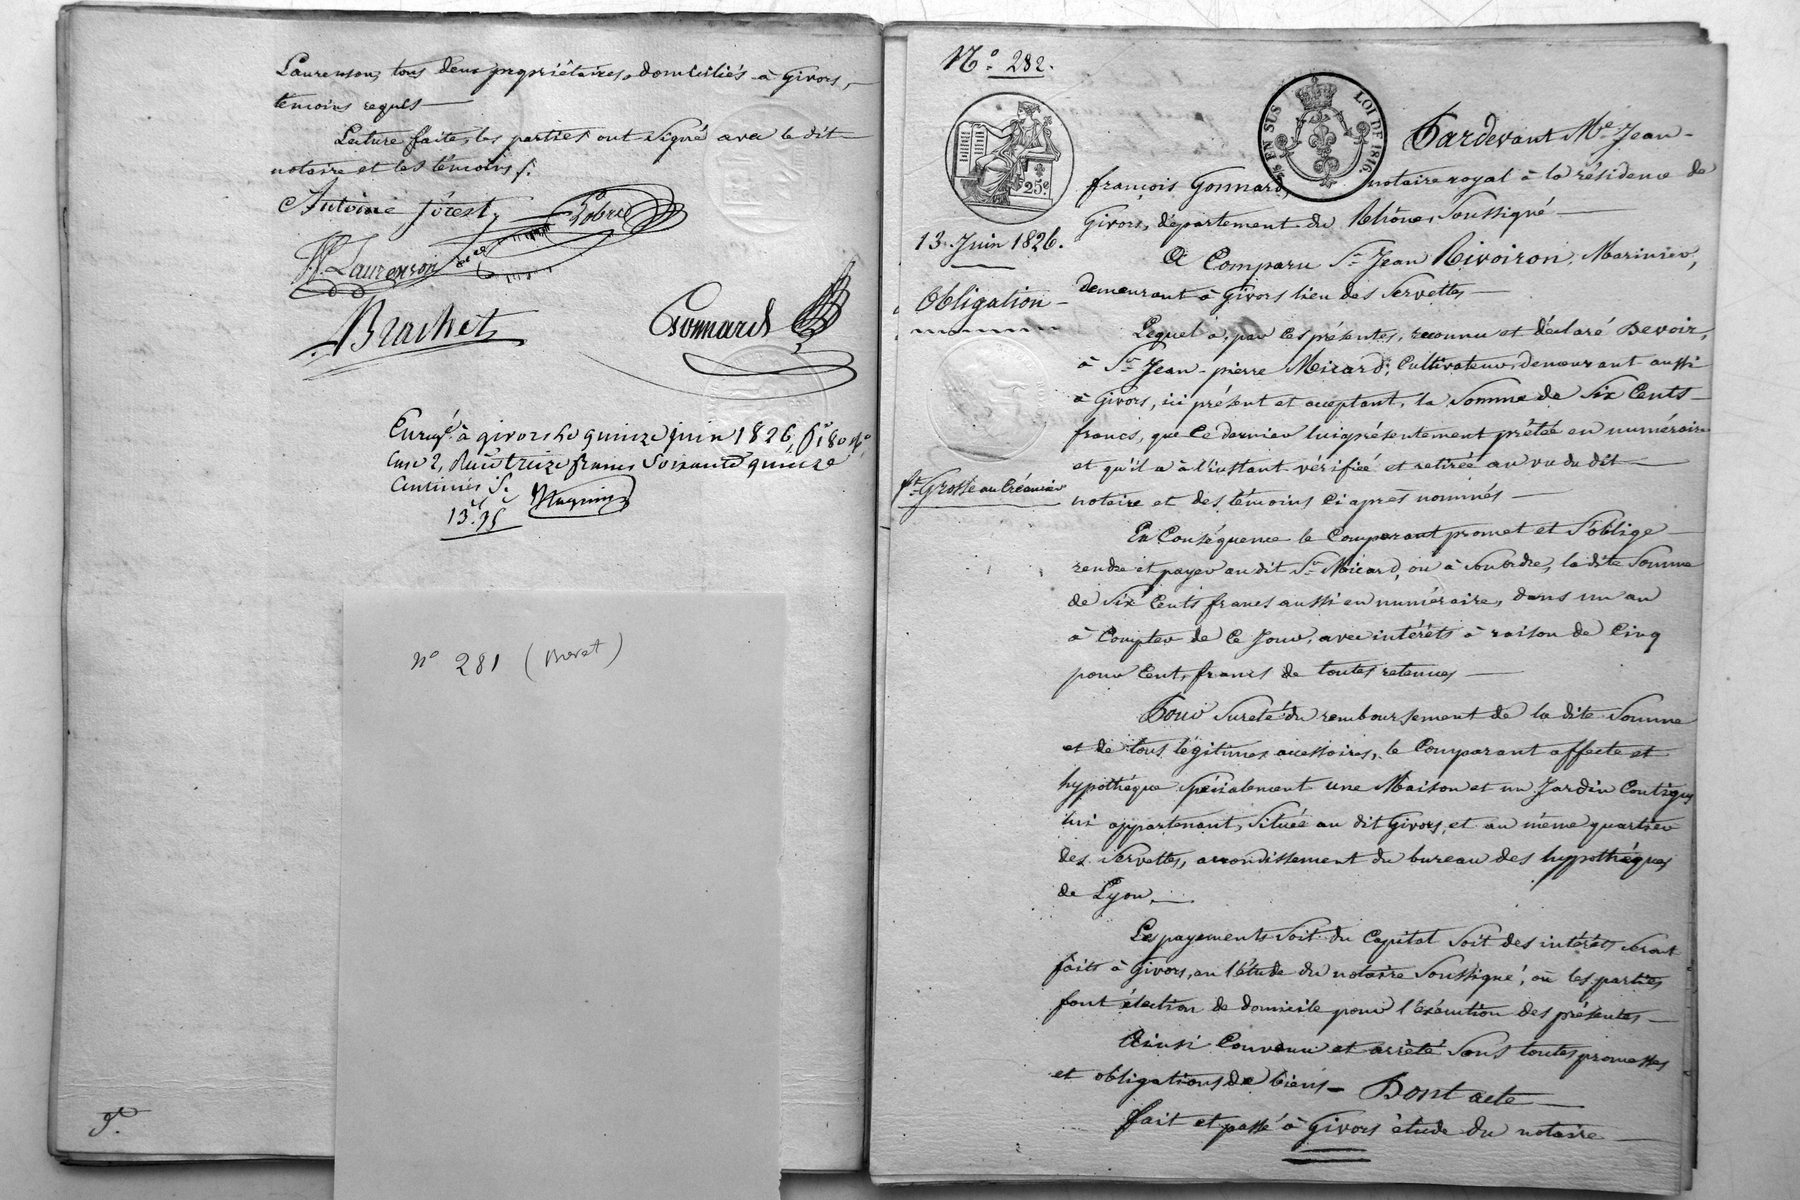 Laurenson, tous deux propriétaires, domiciliés à Givors,
témoins requis
Lecture faite, les parties ont signé avec le dit
notaire et les témoins ./.
Antoine forest
Laurenson
Brachet
Gonnard
Enregé à givors le quinze juin 1826, fo 180 Ro
Case 2, Reçu treize francs soixante quinze
Centimes
N° 281 (Brevet)
N° 282.
25c
25 EN SUS
LOI DE 1816
13 Juin 1826.
Obligation
ft Grosse au Créancier
Pardevant Me Jean-
françois Gonnard, notaire royal à la résidence de
Givors, département du Rhône, Soussigné
A Comparu Sr Jean Rivoiron, Marinier,
demeurant à Givors lieu des Servettes
Lequel a, par les présentes, reconnu et déclaré Devoir,
à Sr Jean-pierre Micard, Cultivateur, demeurant aussi
à Givors, ici présent et acceptant, la Somme de Six Cents
francs, que Ce dernier lui a présentement prêtée en numéraire
et qu'il a à l'instant vérifiée et retirée au vu du dit
notaire et des témoins Ci après nommés
En Conséquence le Comparant promet et S'oblige
rendre et payer au dit Sr Micard, ou à Son ordre, la dite Somme
de Six Cents francs aussi en numéraire, dans un an
à Compter de Ce Jour, avec intérêts à raison de Cinq
pour Cent, francs de toutes retenues
Pour Sureté du remboursement de la dite Somme
et de tous légitimes accessoires, le Comparant affecte et
hypothéque Spécialement une Maison et un Jardin Contigus
lui appartenant, Situés au dit Givors, et au même quartier
des Servettes, arrondissement du bureau des hypothéques
de Lyon
Les payements Soit du Capital Soit des intérêts Seront
faits à Givors, en l'étude du notaire Soussigné, où les parties
font élection de domicile pour l'éxécution des présentes
Ainsi Convenu et arrêté Sous toutes promesses
et obligations de biens Dont acte
fait et passé à Givors étude du notaire